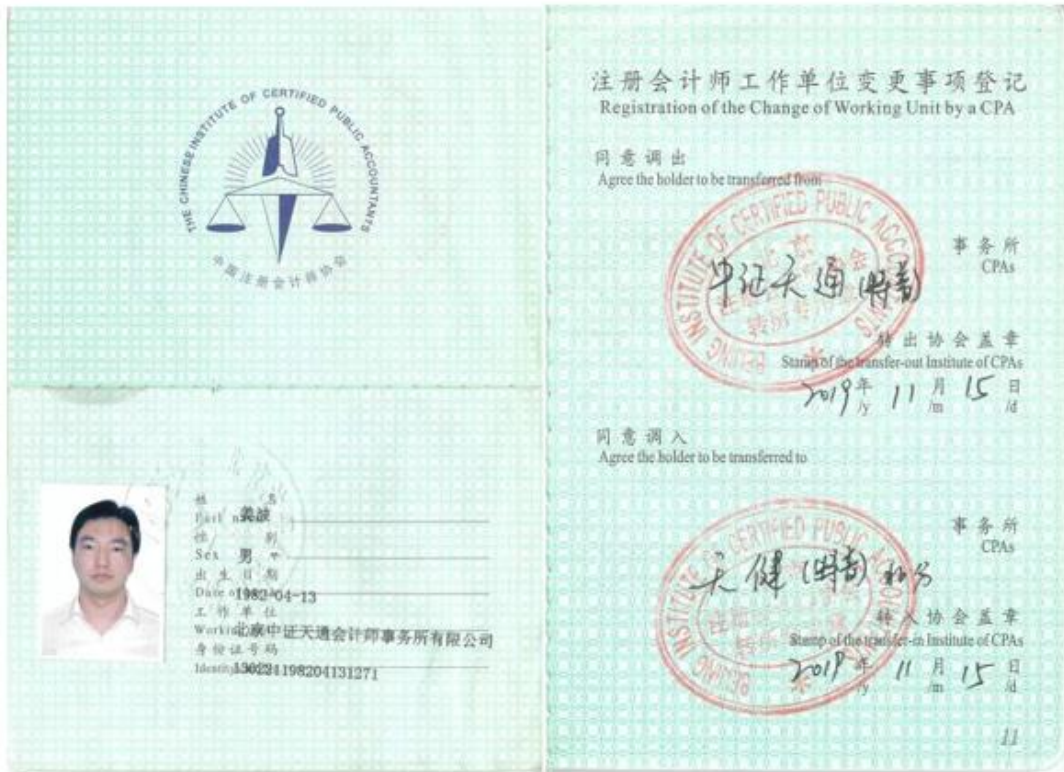 THE CHINESE INSTITUTE OF CERTIFIED PUBLIC ACCOUNTANTS
中国注册会计师协会
姓 名
Full name 姜波
性 别
Sex 男
出生日期
Date of 1982-04-13
工作单位
Working 北京中证天通会计师事务所有限公司
身份证号码
Identity 130221198204131271
注册会计师工作单位变更事项登记
Registration of the Change of Working Unit by a CPA
同意调出
Agree the holder to be transferred from
BEIJING INSTITUTE OF CERTIFIED PUBLIC ACCOUNTANTS
中证天通(特普)
事务所
CPAs
转出协会盖章
Stamp of the transfer-out Institute of CPAs
2019年 11月 15日
/y /m /d
同意调入
Agree the holder to be transferred to
BEIJING INSTITUTE OF CERTIFIED PUBLIC ACCOUNTANTS
事务所
CPAs
天健(特普)
转入协会盖章
Stamp of the transfer-in Institute of CPAs
2019年 11月 15日
/y /m /d
11